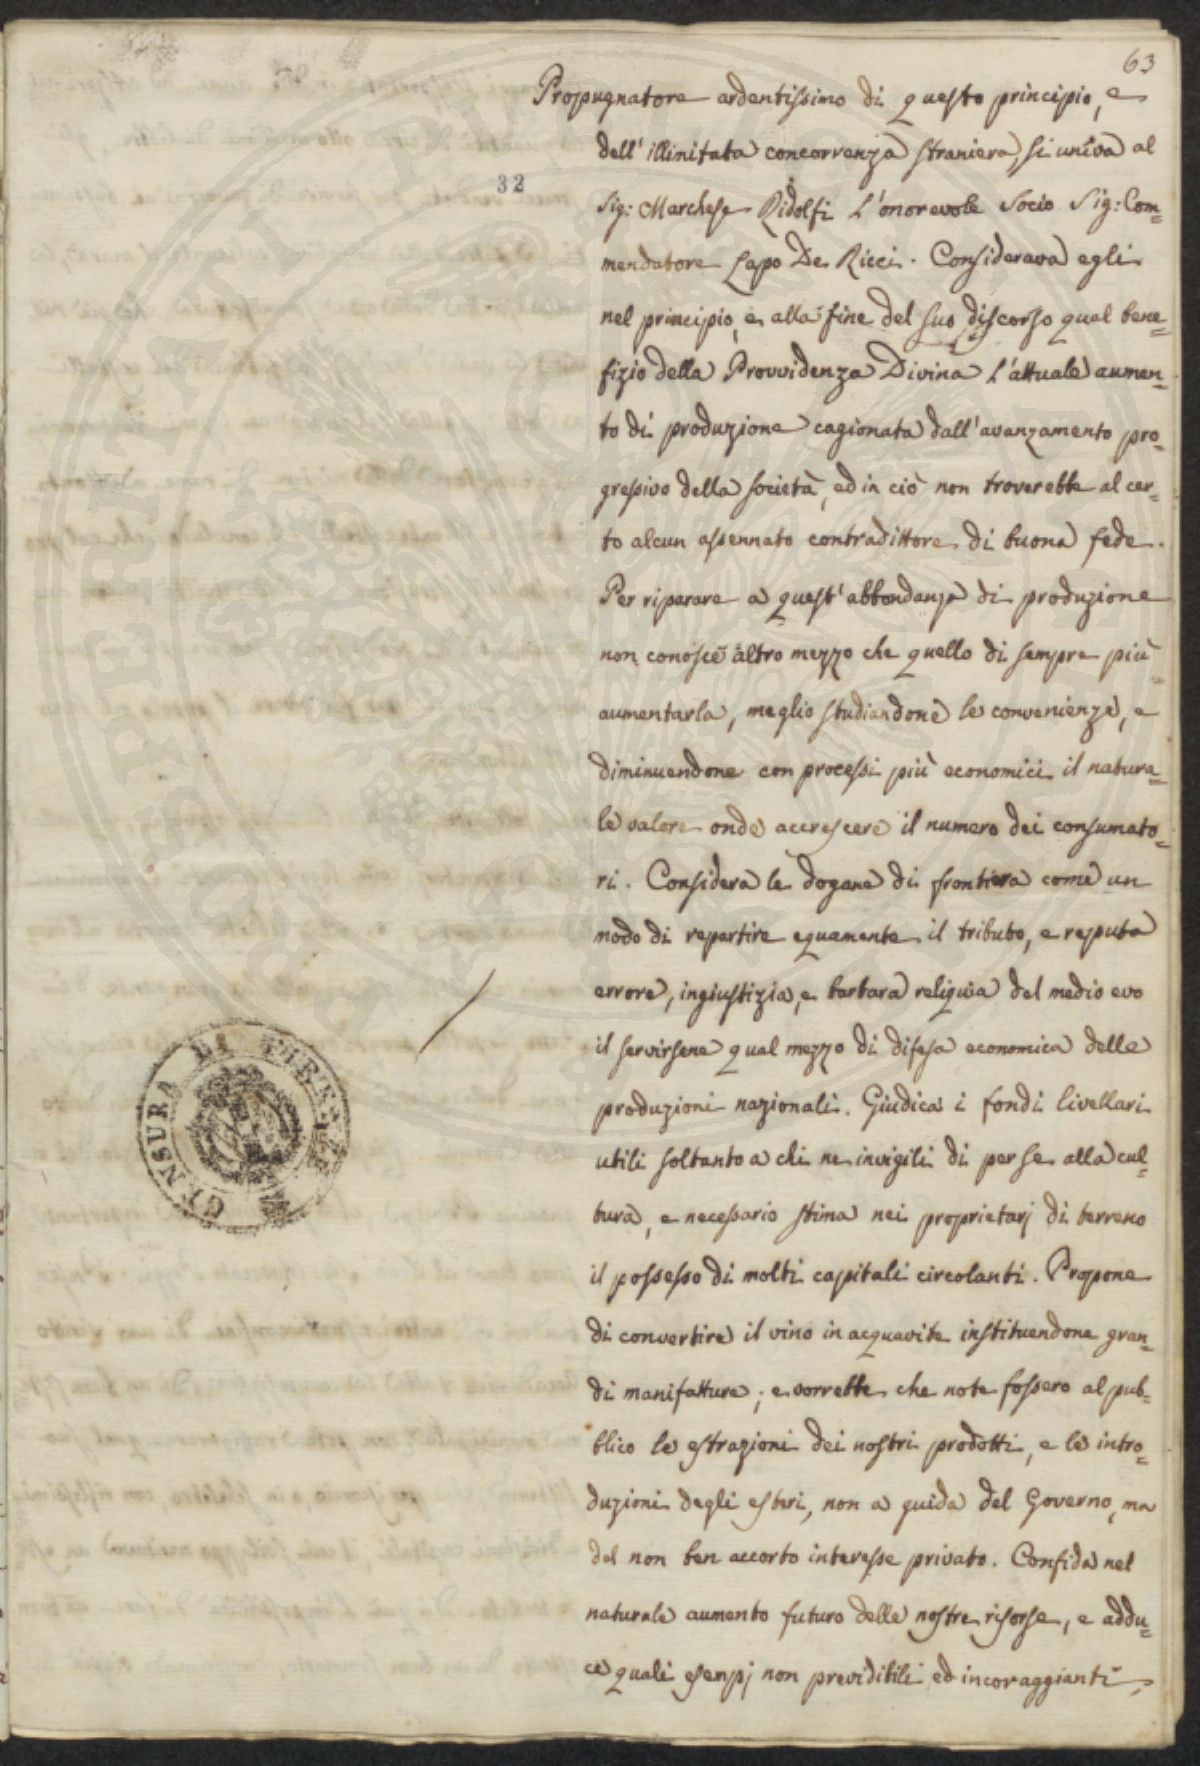 63
Propugnatore ardentissimo di questo principio, e
dell'illimitata concorrenza straniera, si univa al
32
Sig: Marchese Ridolfi l'onorevole Socio Sig: Com=
mendatore Lapo De Ricci. Considerava egli
nel principio, e alla fine del suo discorso qual bene=
fizio della Provvidenza Divina l'attuale aumen=
to di produzione cagionata dall'avanzamento pro=
gressivo della società, ed in ciò non troverebbe al cer=
to alcun assennato contradittore di buona fede.
Per riparare a quest'abbondanza di produzione
non conosce altro mezzo che quello di sempre più
aumentarla, meglio studiandone le convenienze, e
diminuendone con processi più economici il natura=
le valore onde accrescere il numero dei consumato=
ri. Considera le dogane di frontiera come un
modo di repartire equamente il tributo, e reputa
errore, ingiustizia, e barbara reliquia del medio evo
il servirsene qual mezzo di difesa economica delle
produzioni nazionali. Giudica i fondi livellari
utili soltanto a chi ne invigili di per se alla cul=
tura, e necessario stima nei proprietarj di terreno
il possesso di molti capitali circolanti. Propone
di convertire il vino in acquavite instituendone gran=
di manifatture; e vorrebbe che note fossero al pub=
blico le estrazioni dei nostri prodotti, e le intro=
duzioni degli esteri, non a guida del Governo, ma
del non ben accorto interesse privato. Confida nel
naturale aumento futuro delle nostre risorse, e addu=
ce quali esempj non previdibili ed incoraggianti,
CENSURA DI FIRENZE